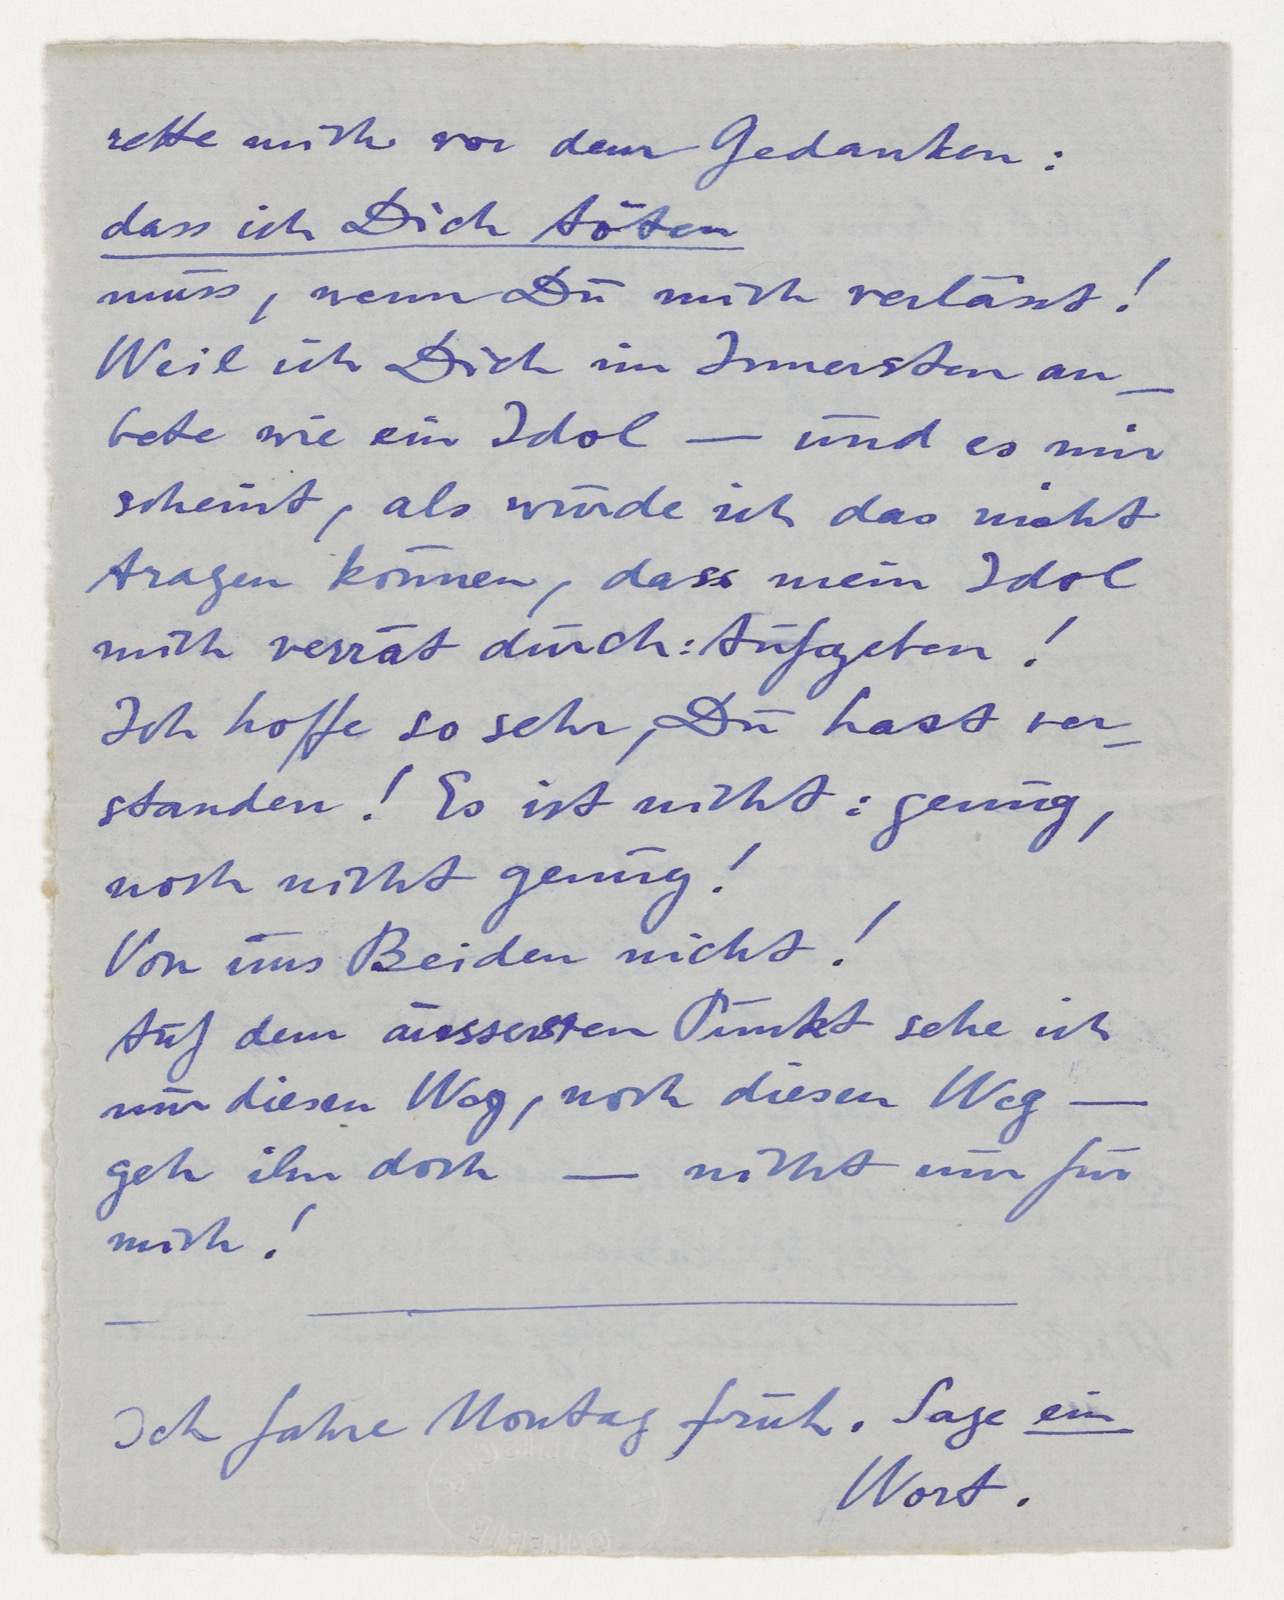 rette mich vor dem Gedanken:
dass ich Dich töten
muss, wenn Du mich verlässt!
Weil ich Dich im Innersten an-
bete wie ein Idol — und es mir
scheint, als würde ich das nicht
tragen können, dass mein Idol
mich verrät durch: Aufgeben!
Ich hoffe so sehr, Du hast ver-
standen! Es ist nicht: genug,
noch nicht genug!
Von uns Beiden nicht!
Auf dem äussersten Punkt sehe ich
nur diesen Weg, noch diesen Weg —
geh ihn doch — nicht nur für
mich!
Ich fahre Montag früh. Sage ein
Wort.